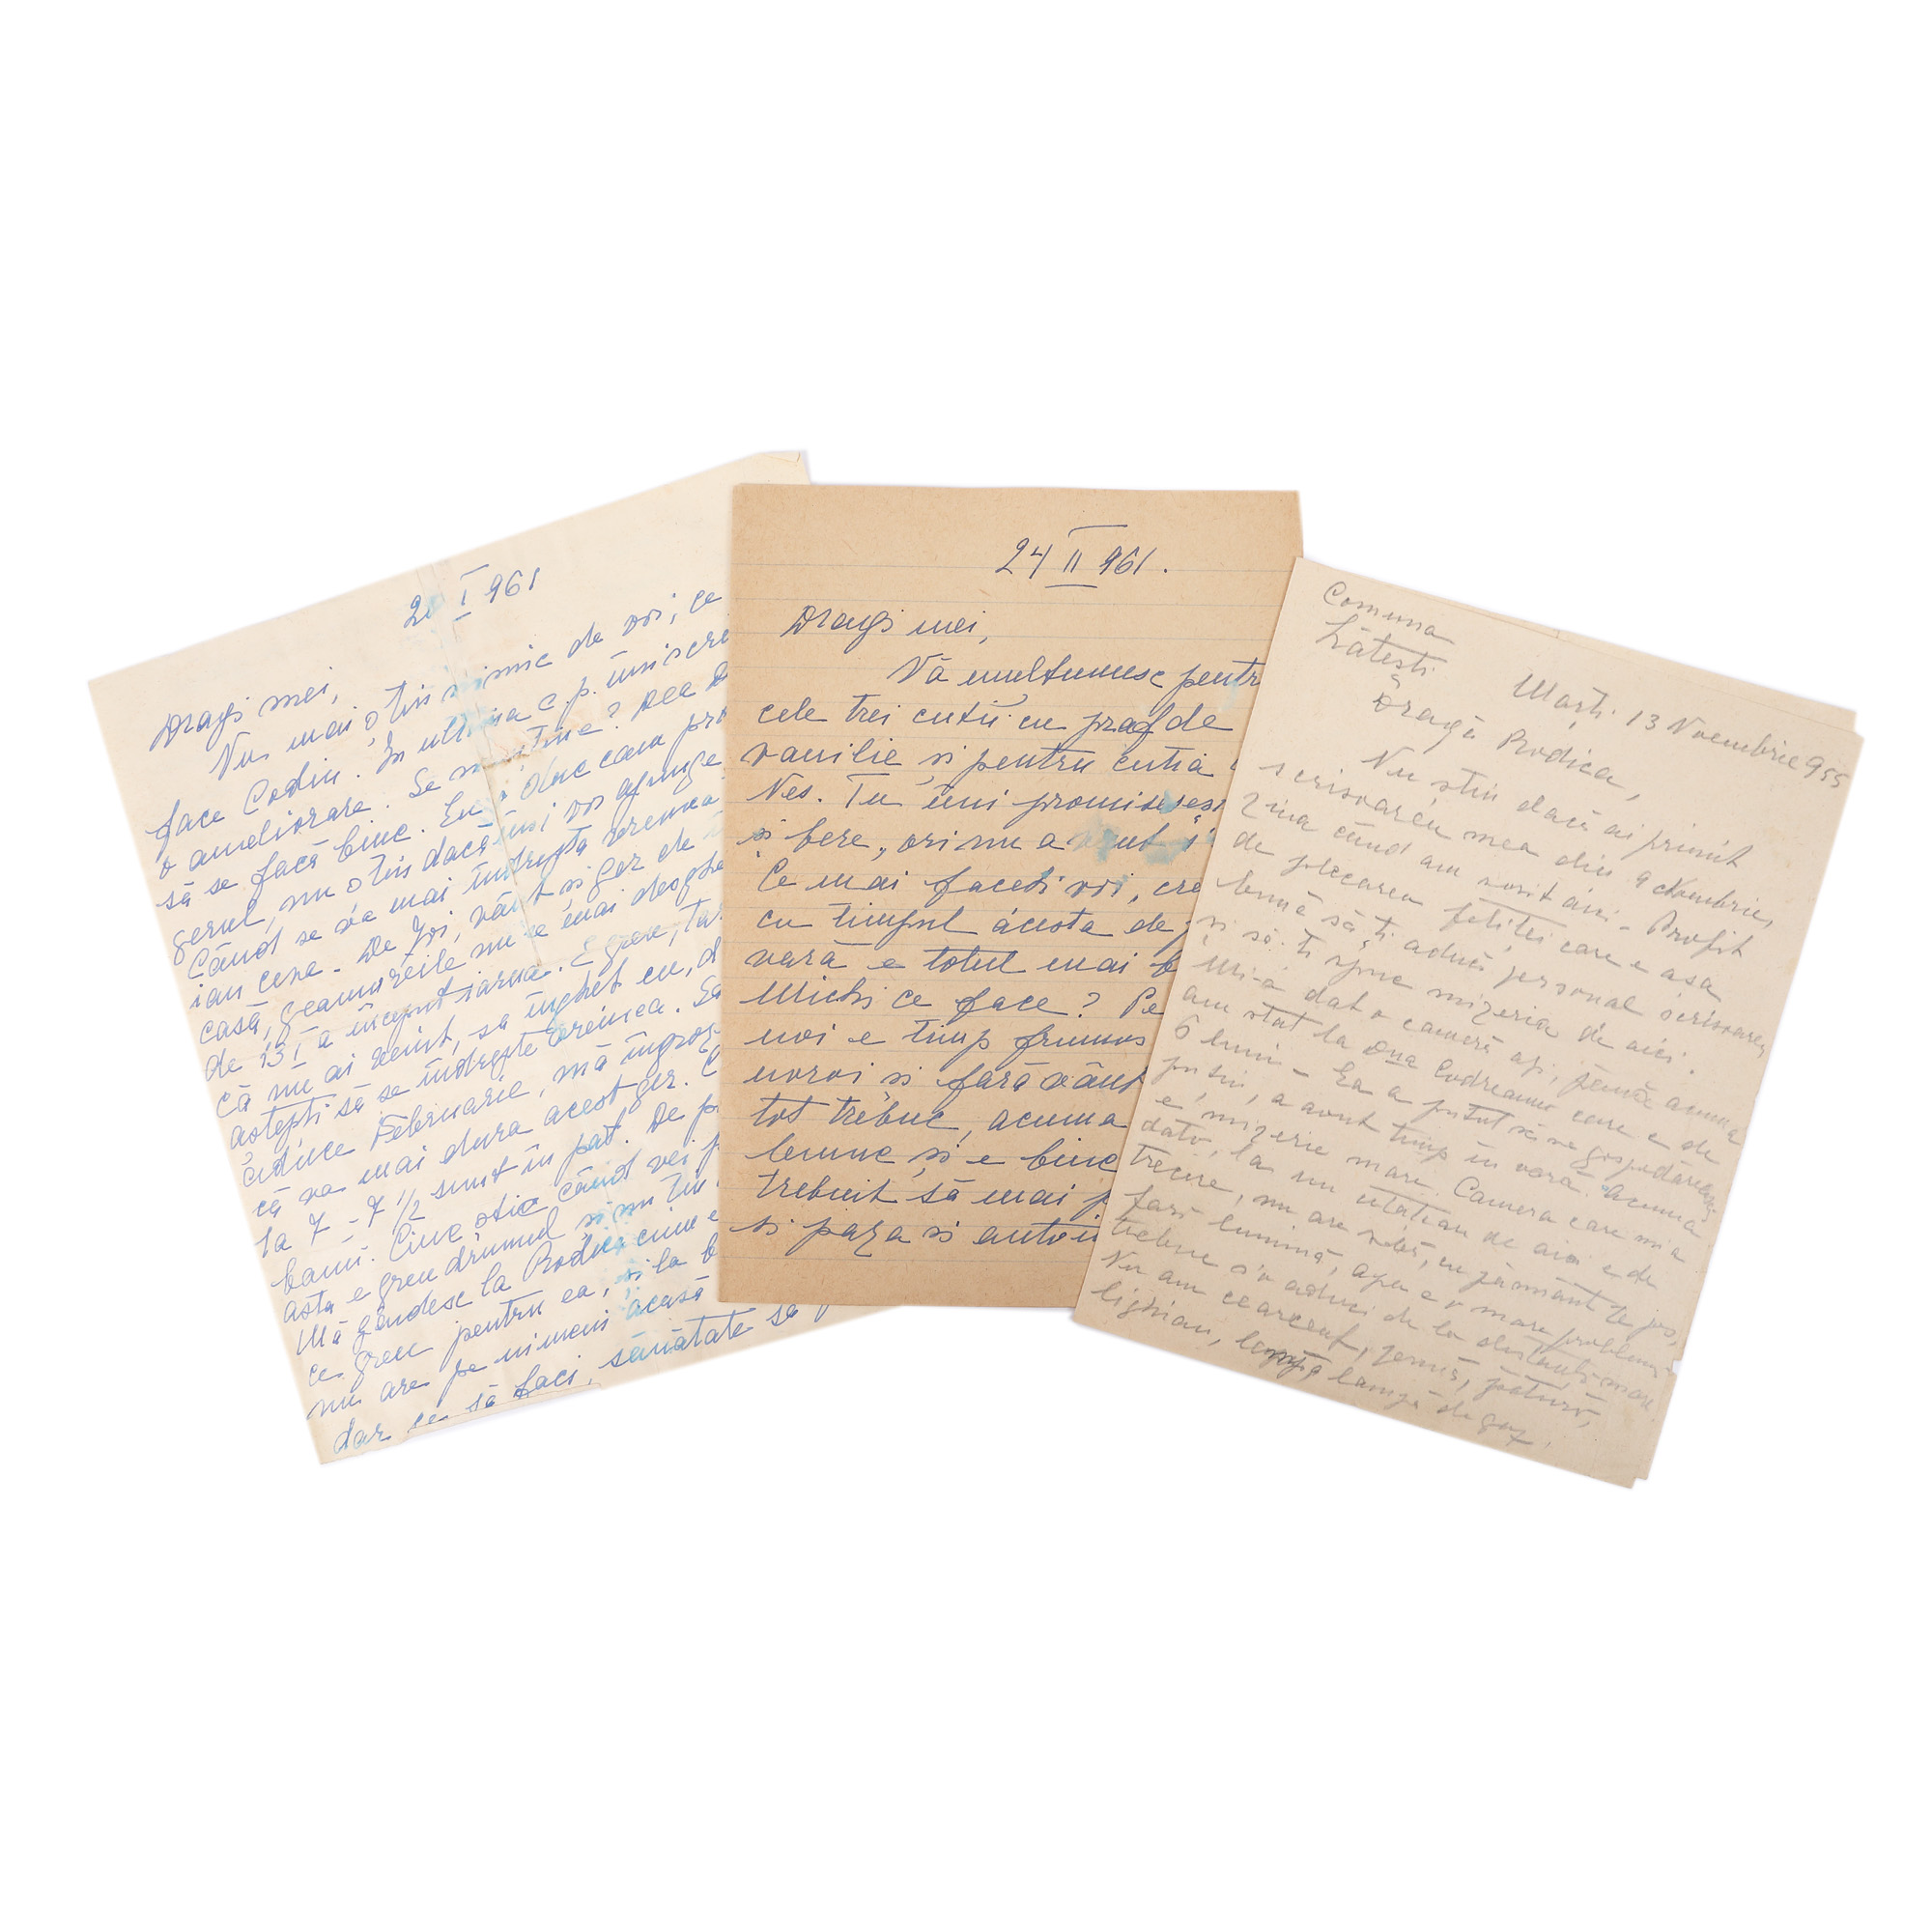 20 I 961
Dragii mei,
Nu mai știu nimic de voi, ce
face Codin. In ultima c.p. îmi scrii
o ameliorare. Se menține? Dea D
să se facă bine. Eu o duc cam pro
gerul, nu știu dacă îmi vor ajunge
Când se va mai îndrepta vremea
iau cera. De Joi, vânt și ger de
casă, geamurile nu se mai desghe
de 13 I a început iarna. E greu, tar
că nu ai venit, sa îngheț eu, d
aștepți să se îndrepte vremea. Sa
aduce Februarie, mă îngroz
că va mai dura acest ger.
la 7 - 7 1/2 sunt în pat. De
bani. Cine știe când vei p
asta e greu drumul și un
Mă gândesc la Rodica cine e
ce greu pentru ea, și la b
nu are pe nimeni acasă
dar ce să faci, sănătate să
24 II 961.
Dragii mei,
Vă mulțumesc pentr
cele trei cutii cu praf de
vanilie și pentru cutia
Nes. Tu îmi promisesesi
și bere, ori nu a vrut
Ce mai faceți voi, cre
cu timpul acesta de
vară e totul mai b
Michi ce face? Pe
noi e timp frumos
noroi și fară vânt
tot trebuc, acuma
lemne și e bine
trebuit să mai p
și paza și
Comuna
Lătești
Marți 13 Noembrie 955
Dragă Rodica,
Nu știu dacă ai primit
scrisoarea mea din 9 Noembrie,
ziua când am sosit aici. Profit
de plecarea fetiței care e așa
bună să-ți aducă personal scrisoarea
și să-ți spue mizeria de aici.
Mi-a dat o cameră api, până acuma
am stat la Dna Codreanu care e de
6 luni - Ea a putut să se gospodărească
puțin, a avut timp în vară. Acuma
e mizerie mare. Camera care mi-a
dato, la un utătian de aici e de
trecere, nu are sobă, cu pământ pe jos,
fară lumină, apa e o mare problemă
trebue s'o aduci de la distanță mare.
Nu am cearceaf, pernă, pătură,
lighian, lampă de gaz.